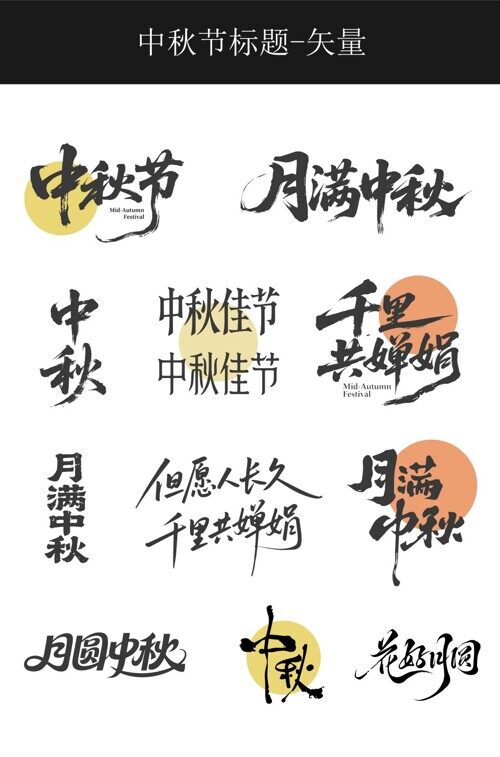 中秋节标题-矢量
中秋节
Mid-Autumn
Festival
月满中秋
中
秋
中秋佳节
中秋佳节
千里
共婵娟
Mid-Autumn
Festival
月
满
中
秋
但愿人长久
千里共婵娟
月满
中秋
月圆中秋
中秋
花好月圆